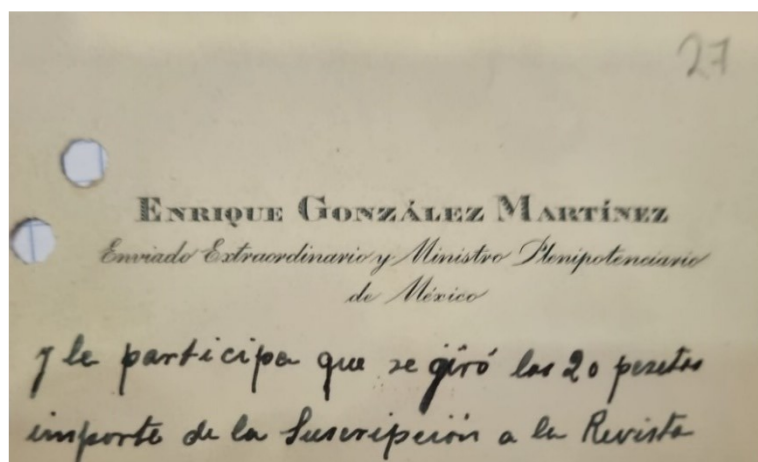 27
ENRIQUE GONZÁLEZ MARTÍNEZ
Enviado Extraordinario y Ministro Plenipotenciario
de México
y le participa que se giró las 20 pesetas
importe de la Suscripción a la Revista